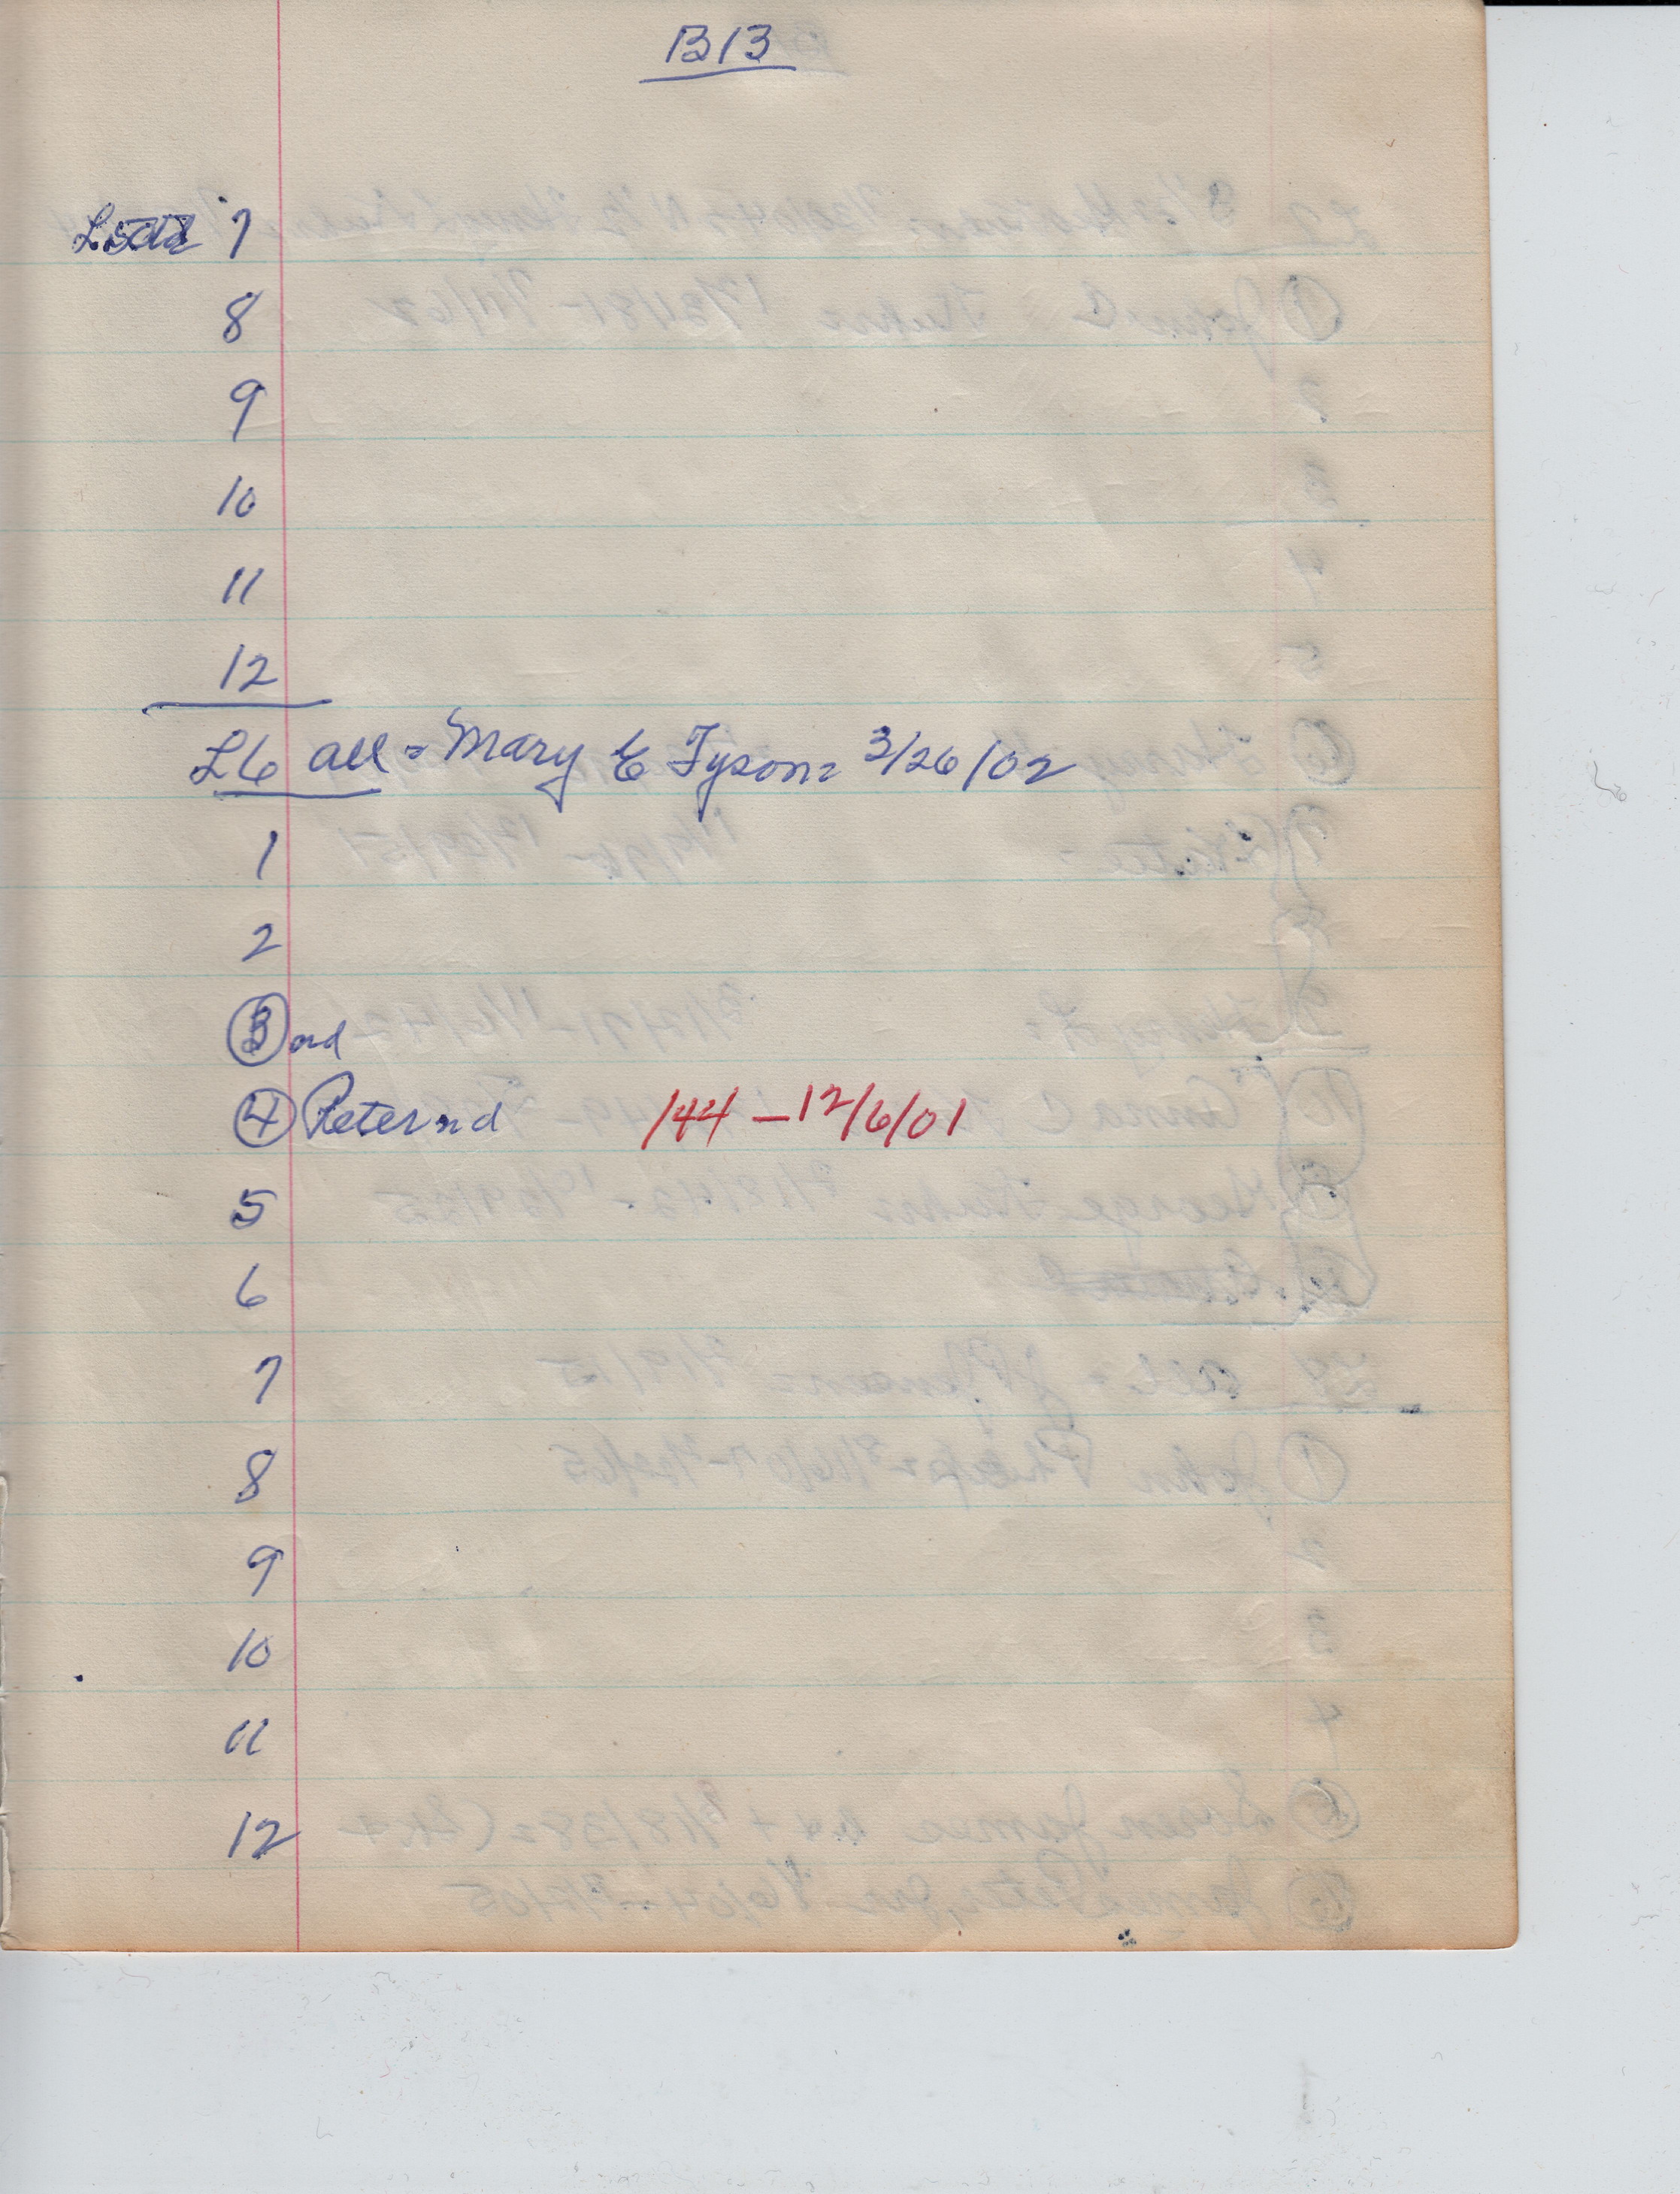 B13
7
8
9
10
11
12
L6 all = Mary E Tyson = 3/26/02
1
2
3 and
4 Peter nd 144 - 12/6/01
5
6
7
8
9
10
11
12